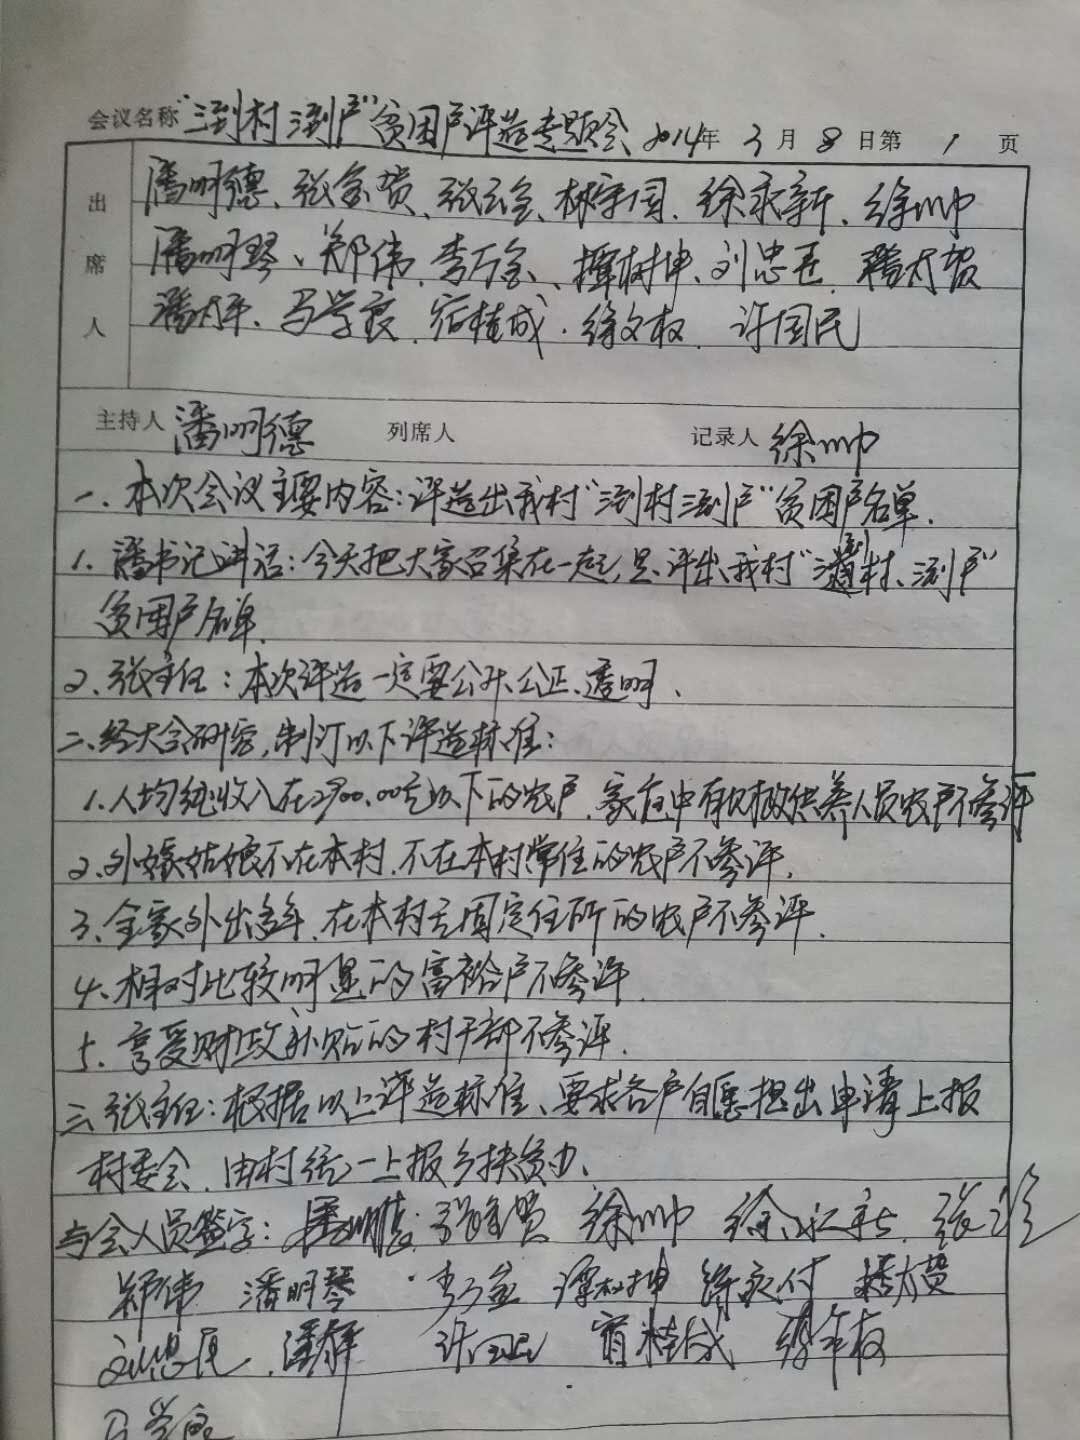 会议名称 "三到村三到户"贫困户评选专题会 2014年3月8日第1页
出席人
潘明德、张金贵、张云全、林宇国、徐永新、徐帅
潘明琴、郑伟、李万全、谭树坤、刘忠、潘太贺
潘太平、马学良、宿桂成、徐文权、许国民
主持人 潘明德 列席人 记录人 徐帅
一、本次会议主要内容:评选出我村"三到村三到户"贫困户名单.
1、潘书记讲话:今天把大家召集在一起,是评出我村"三到村、三到户"
贫困户名单.
2、张主任:本次评选一定要公开、公正、透明、
二、经大会研究,制订以下评选标准:
1、人均纯收入在2900.00元以下的农户,家庭中有财政供养人员农户不参评
2、外嫁姑娘不在本村,不在本村常住的农户不参评,
3、全家外出多年,在本村无固定住所的农户不参评.
4、相对比较明显的富裕户不参评.
5、享受财政补贴的村干部不参评.
三、张主任:根据以上评选标准、要求各户自愿提出申请上报
村委会,由村统一上报乡扶贫办、
与会人员签字:潘明德 张金贵 徐帅 徐永新 张
郑伟 潘明琴 李万全 谭树坤 徐永付 潘太贺
刘忠 潘太平 许国民 宿桂成
马学良